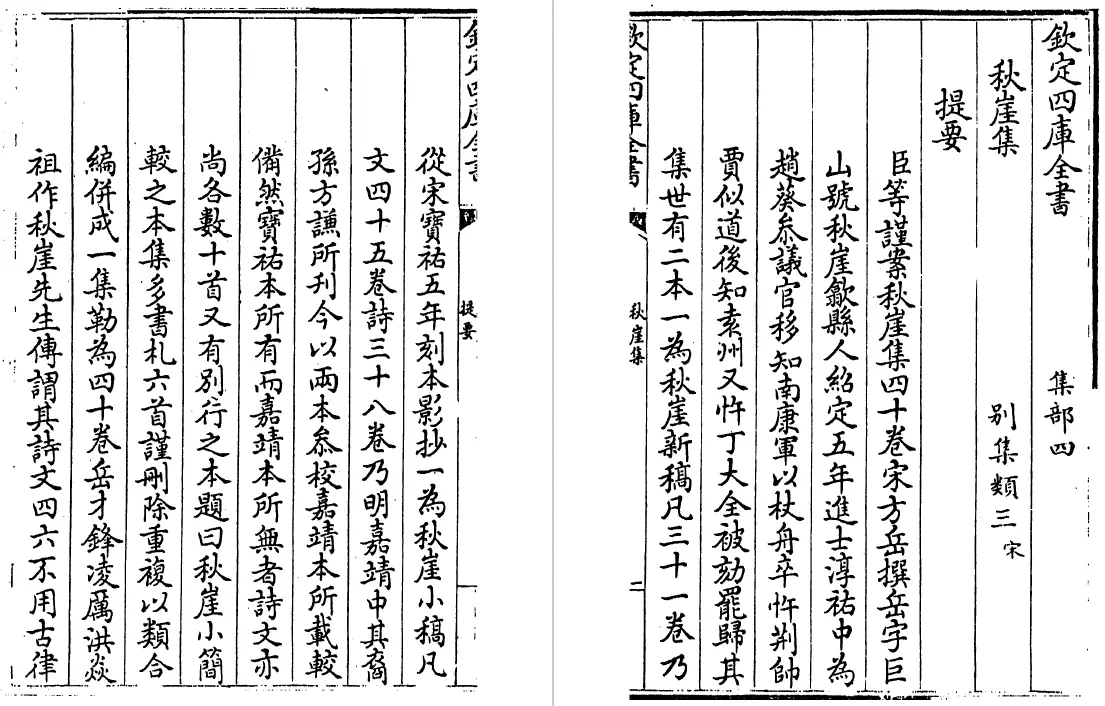 欽定四庫全書 集部四
秋崖集 别集類三 宋
提要
臣等謹案秋崖集四十卷宋方岳撰岳字巨
山號秋崖歙縣人紹定五年進士淳祐中為
趙葵叅議官移知南康軍以杖舟卒忤荆帥
賈似道後知袁州又忤丁大全被劾罷歸其
集世有二本一為秋崖新稿凡三十一卷乃
欽定四庫全書 秋崖集 二
欽定四庫全書 提要
從宋寶祐五年刻本影抄一為秋崖小稿凡
文四十五卷詩三十八卷乃明嘉靖中其裔
孫方謙所刊今以兩本叅校嘉靖本所載較
備然寶祐本所有而嘉靖本所無者詩文亦
尚各數十首又有别行之本題曰秋崖小簡
較之本集多書札六首謹刪除重複以類合
編併成一集勒為四十卷岳才鋒凌厲洪焱
祖作秋崖先生傳謂其詩文四六不用古律